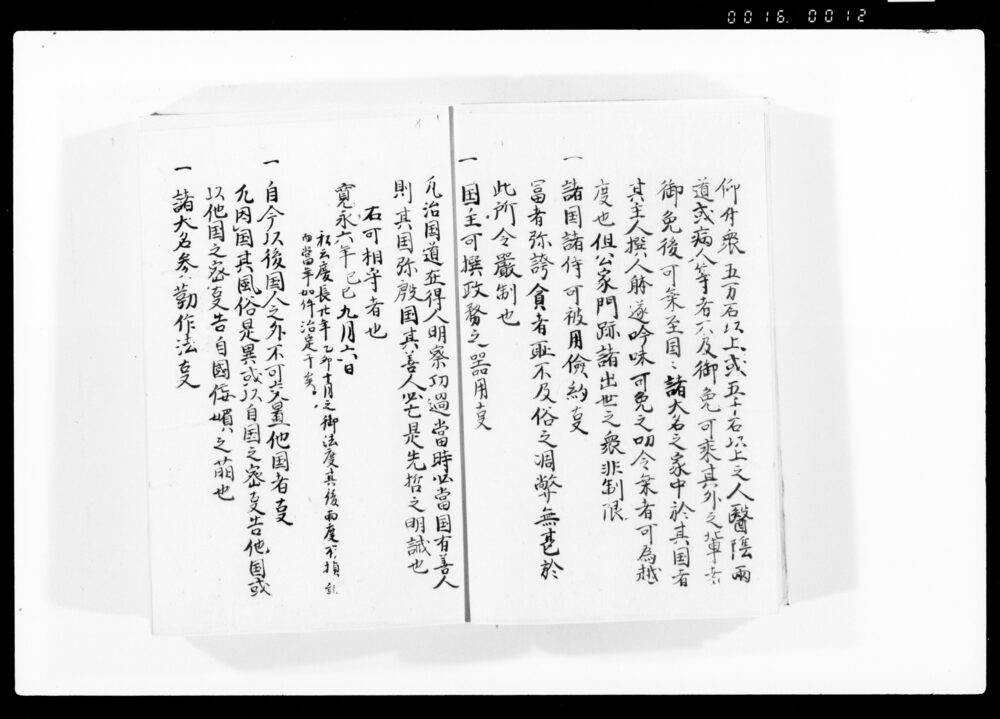 0016.0012
仰付衆五万石以上或五千石以上之人醫陰兩
道或病人等者不及御免可乗其外之輩者
御免後可乗至国〻諸大名之家中於其国者
其主人撰人躰遂吟味可免之叨令乗者可為越
度也但公家門跡諸出世之衆非制限
一 諸国諸侍可被用儉約亊
冨者弥誇貪者耻不及俗之凋弊無甚於
此所令嚴制也
一 国主可撰政務之器用亊
凡治国道在得人明察功過當時必當国有善人
則其国弥殷国其善人必亡是先哲之明誡也
右可相守者也
寛永六年己巳九月六日
私云慶長廿年乙卯十月之御法度其後両度不損
而當年如件治定于矣
一 自今以後国人之外不可交置他国者亊
凡因国其風俗是異或以自国之密亊告他国或
以他国之密亊告自國侫媚之萠也
一 諸大名参勤作法亊